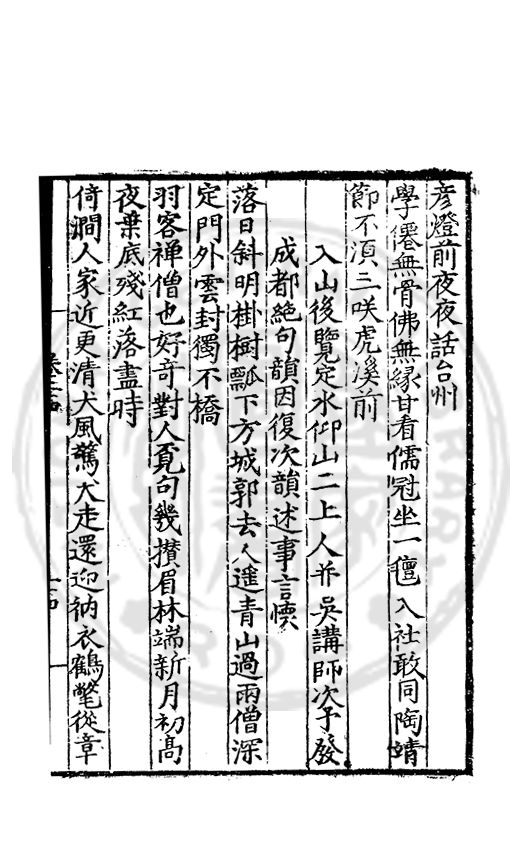 彥燈前夜夜話台州
學僊無骨佛無緣甘看儒冠坐一氊入社敢同陶靖
節不湏三咲虎溪前
入山後覽定水仰山二上人并吳講師次予發
成都絶句韻因復次韻述事言懷
落日斜明掛樹瓢下方城郭去人遥青山過雨僧深
定門外雲封獨木橋
羽客禅僧也好竒對人覓句幾攅眉林端新月初髙
夜葉底殘紅落盡時
倚澗人家近更清犬風驚犬走還迎衲衣鶴氅從章